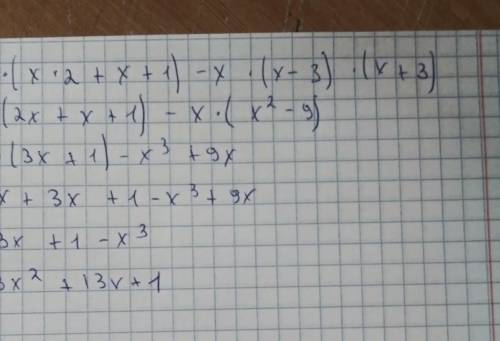 ·(x·2+x+1)-x·(x-3)·(x+3)
(2x+x+1)-x·(x²-9)
(3x+1)-x³+9x
x+3x+1-x³+9x
3x+1-x³
3x²+13x+1